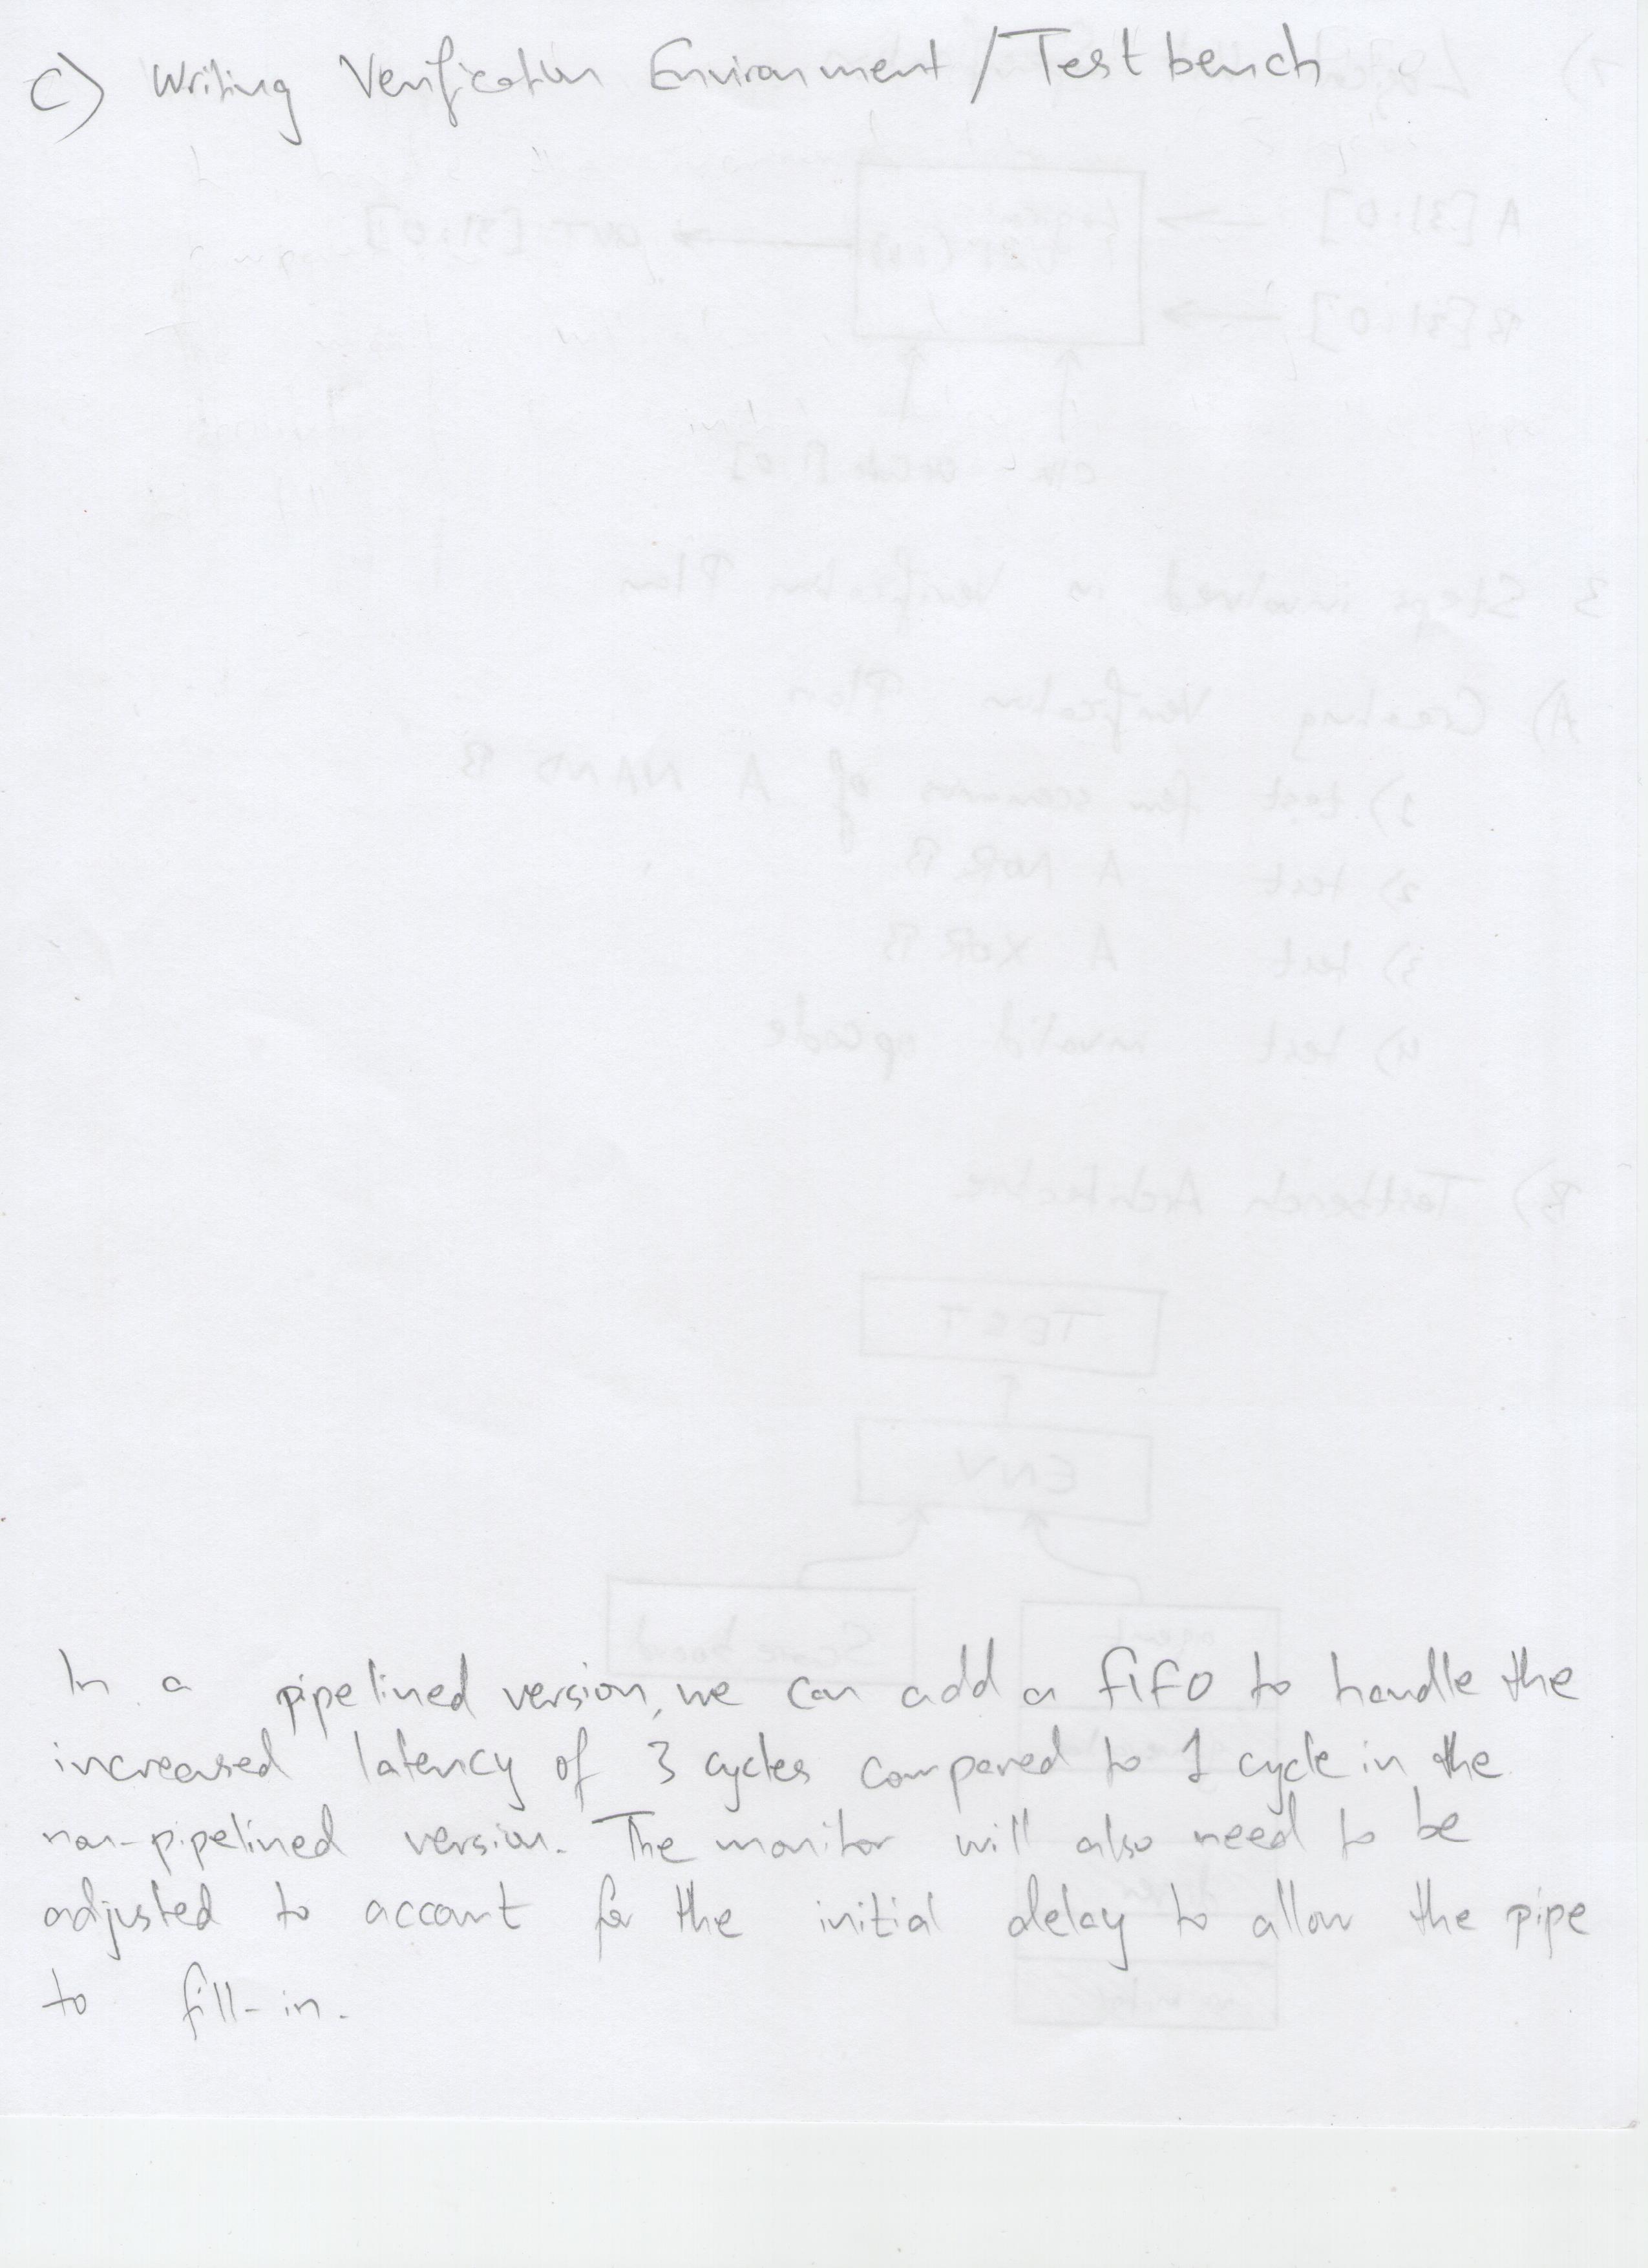 C) Writing Verification Environment / Testbench
In a pipelined version, we can add a FIFO to handle the
increased latency of 3 cycles compared to 1 cycle in the
non-pipelined version. The monitor will also need to be
adjusted to account for the initial delay to allow the pipe
to fill-in.